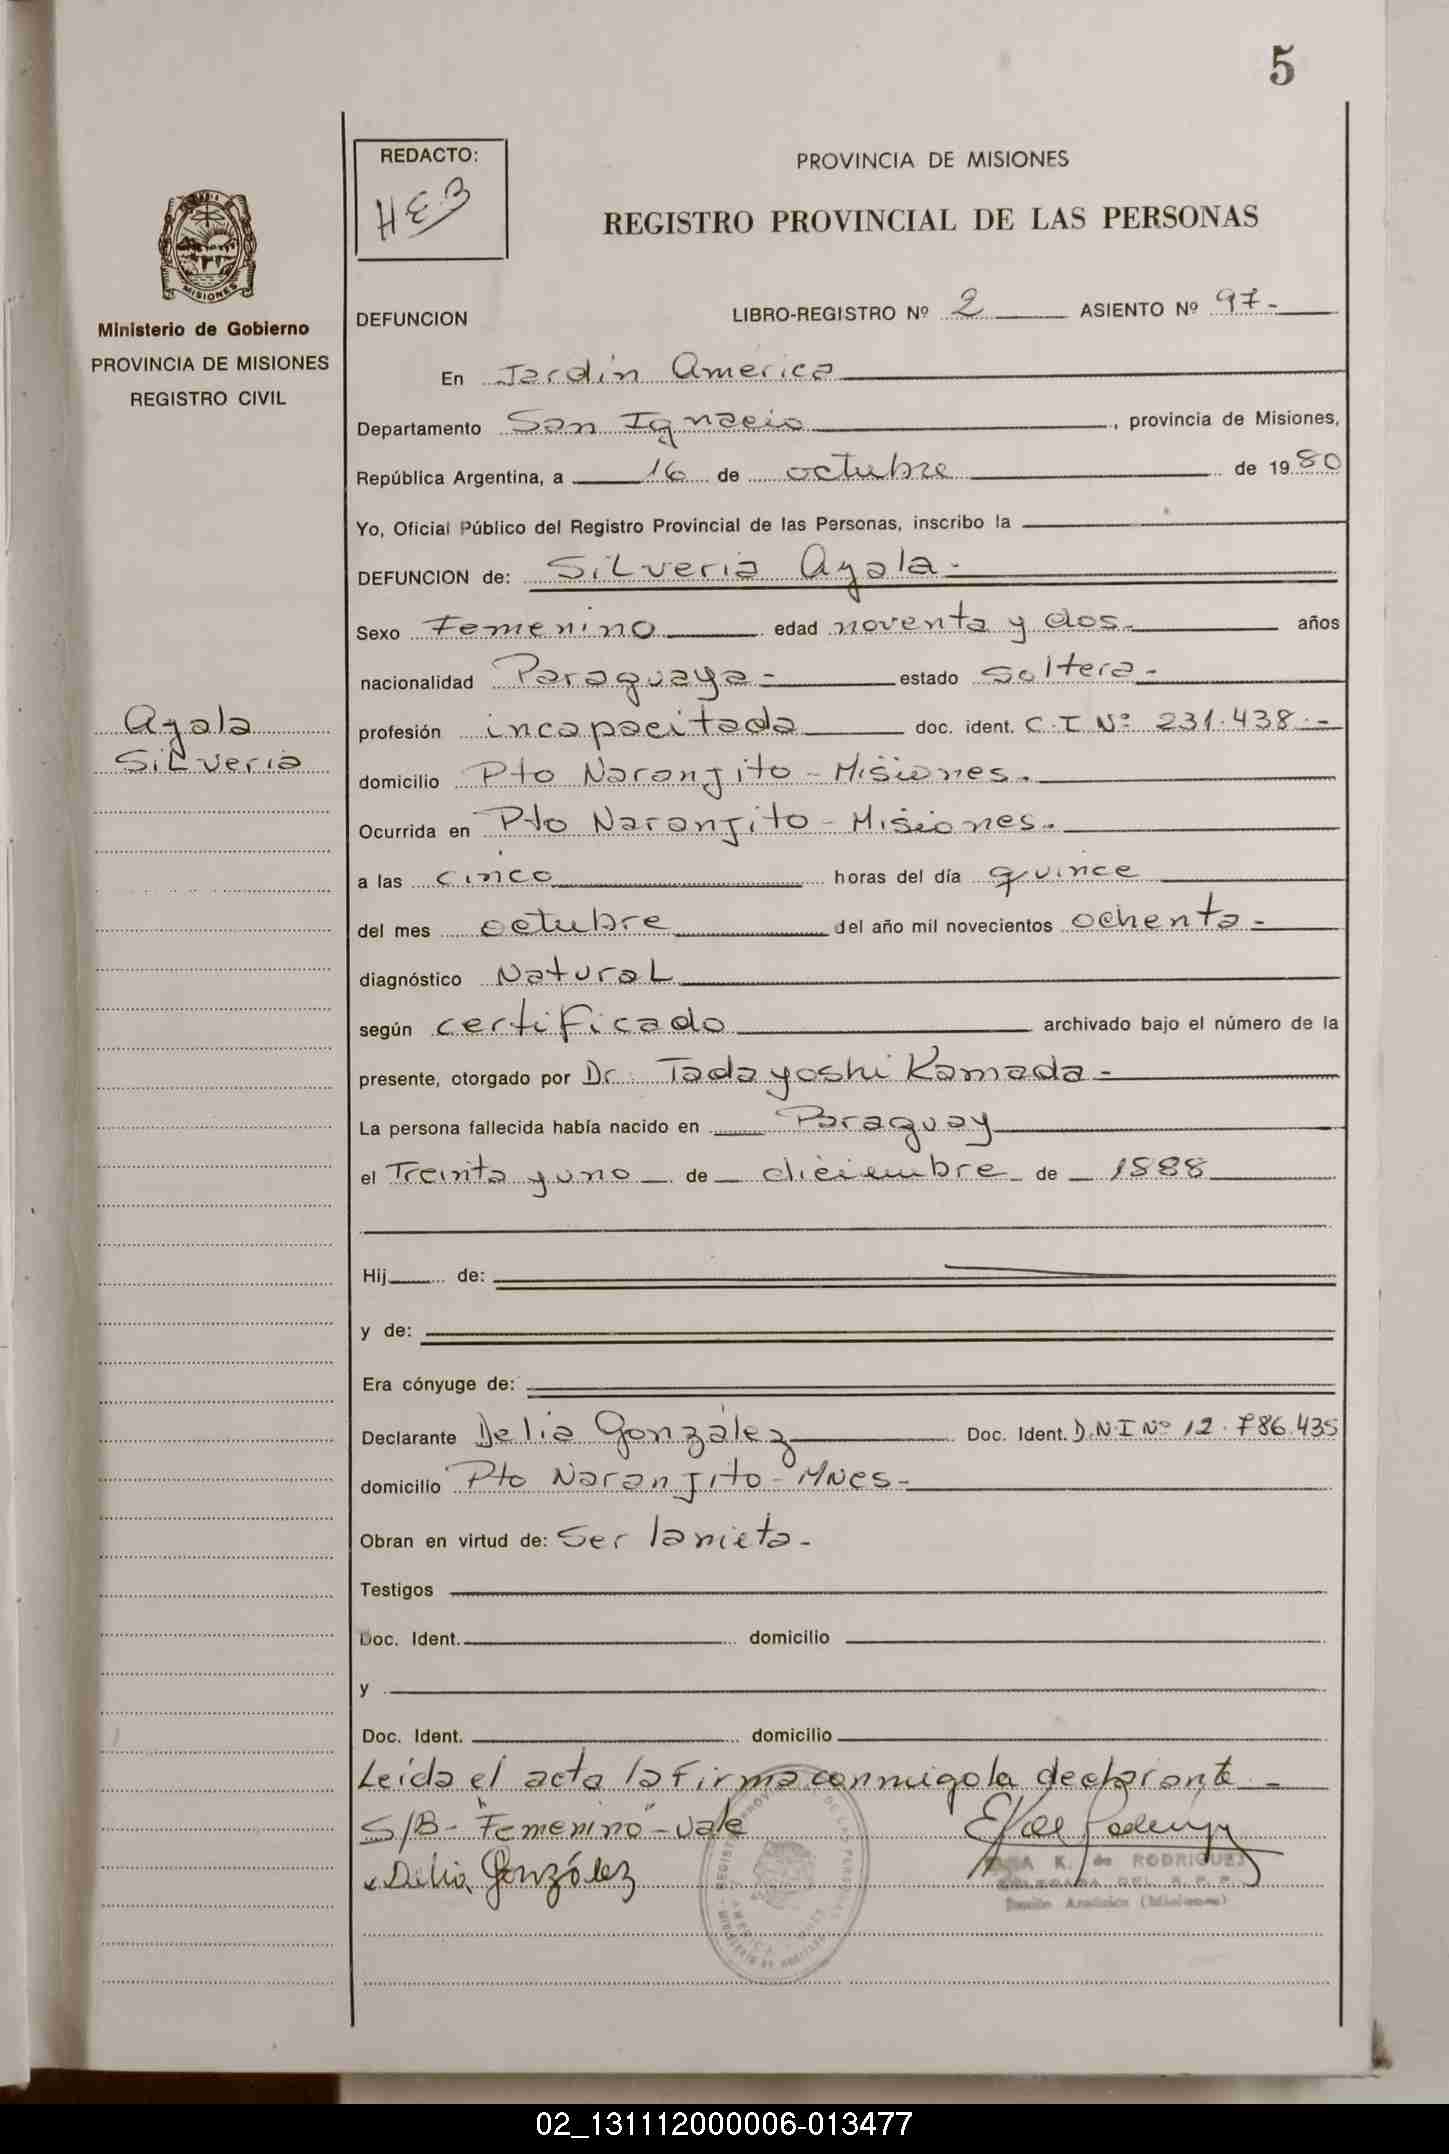 5
REDACTO:
HEB
PROVINCIA DE MISIONES
REGISTRO PROVINCIAL DE LAS PERSONAS
MISIONES
Ministerio de Gobierno
PROVINCIA DE MISIONES
REGISTRO CIVIL
DEFUNCION LIBRO-REGISTRO Nº 2 ASIENTO Nº 97-
En Jardin America
Departamento San Ignacio, provincia de Misiones,
República Argentina, a 16 de octubre de 1980
Yo, Oficial Público del Registro Provincial de las Personas, inscribo la
DEFUNCION de: Silveria Ayala-
Sexo Femenino edad noventa y dos- años
nacionalidad Paraguaya- estado soltera-
Ayala
Silveria
profesión incapacitada doc. ident. C.I Nº 231.438.-
domicilio Pto Naranjito - Misiones.
Ocurrida en Pto Naranjito - Misiones.
a las cinco horas del día quince
del mes octubre del año mil novecientos ochenta-
diagnóstico Natural
según certificado archivado bajo el número de la
presente, otorgado por Dr. Tadayoshi Kamada-
La persona fallecida había nacido en Paraguay
el Treinta y uno de diciembre de 1888
Hij de:
y de:
Era cónyuge de:
Declarante Delia González Doc. Ident. D.N.I Nº 12.786.435
domicilio Pto Naranjito - Mnes-
Obran en virtud de: Ser la nieta-
Testigos
Doc. Ident. domicilio
y
Doc. Ident. domicilio
Leída el acta la firma conmigo la declarante-
S/B- "Femenino"- vale
Delia González
K. de RODRIGUEZ
02_131112000006-013477